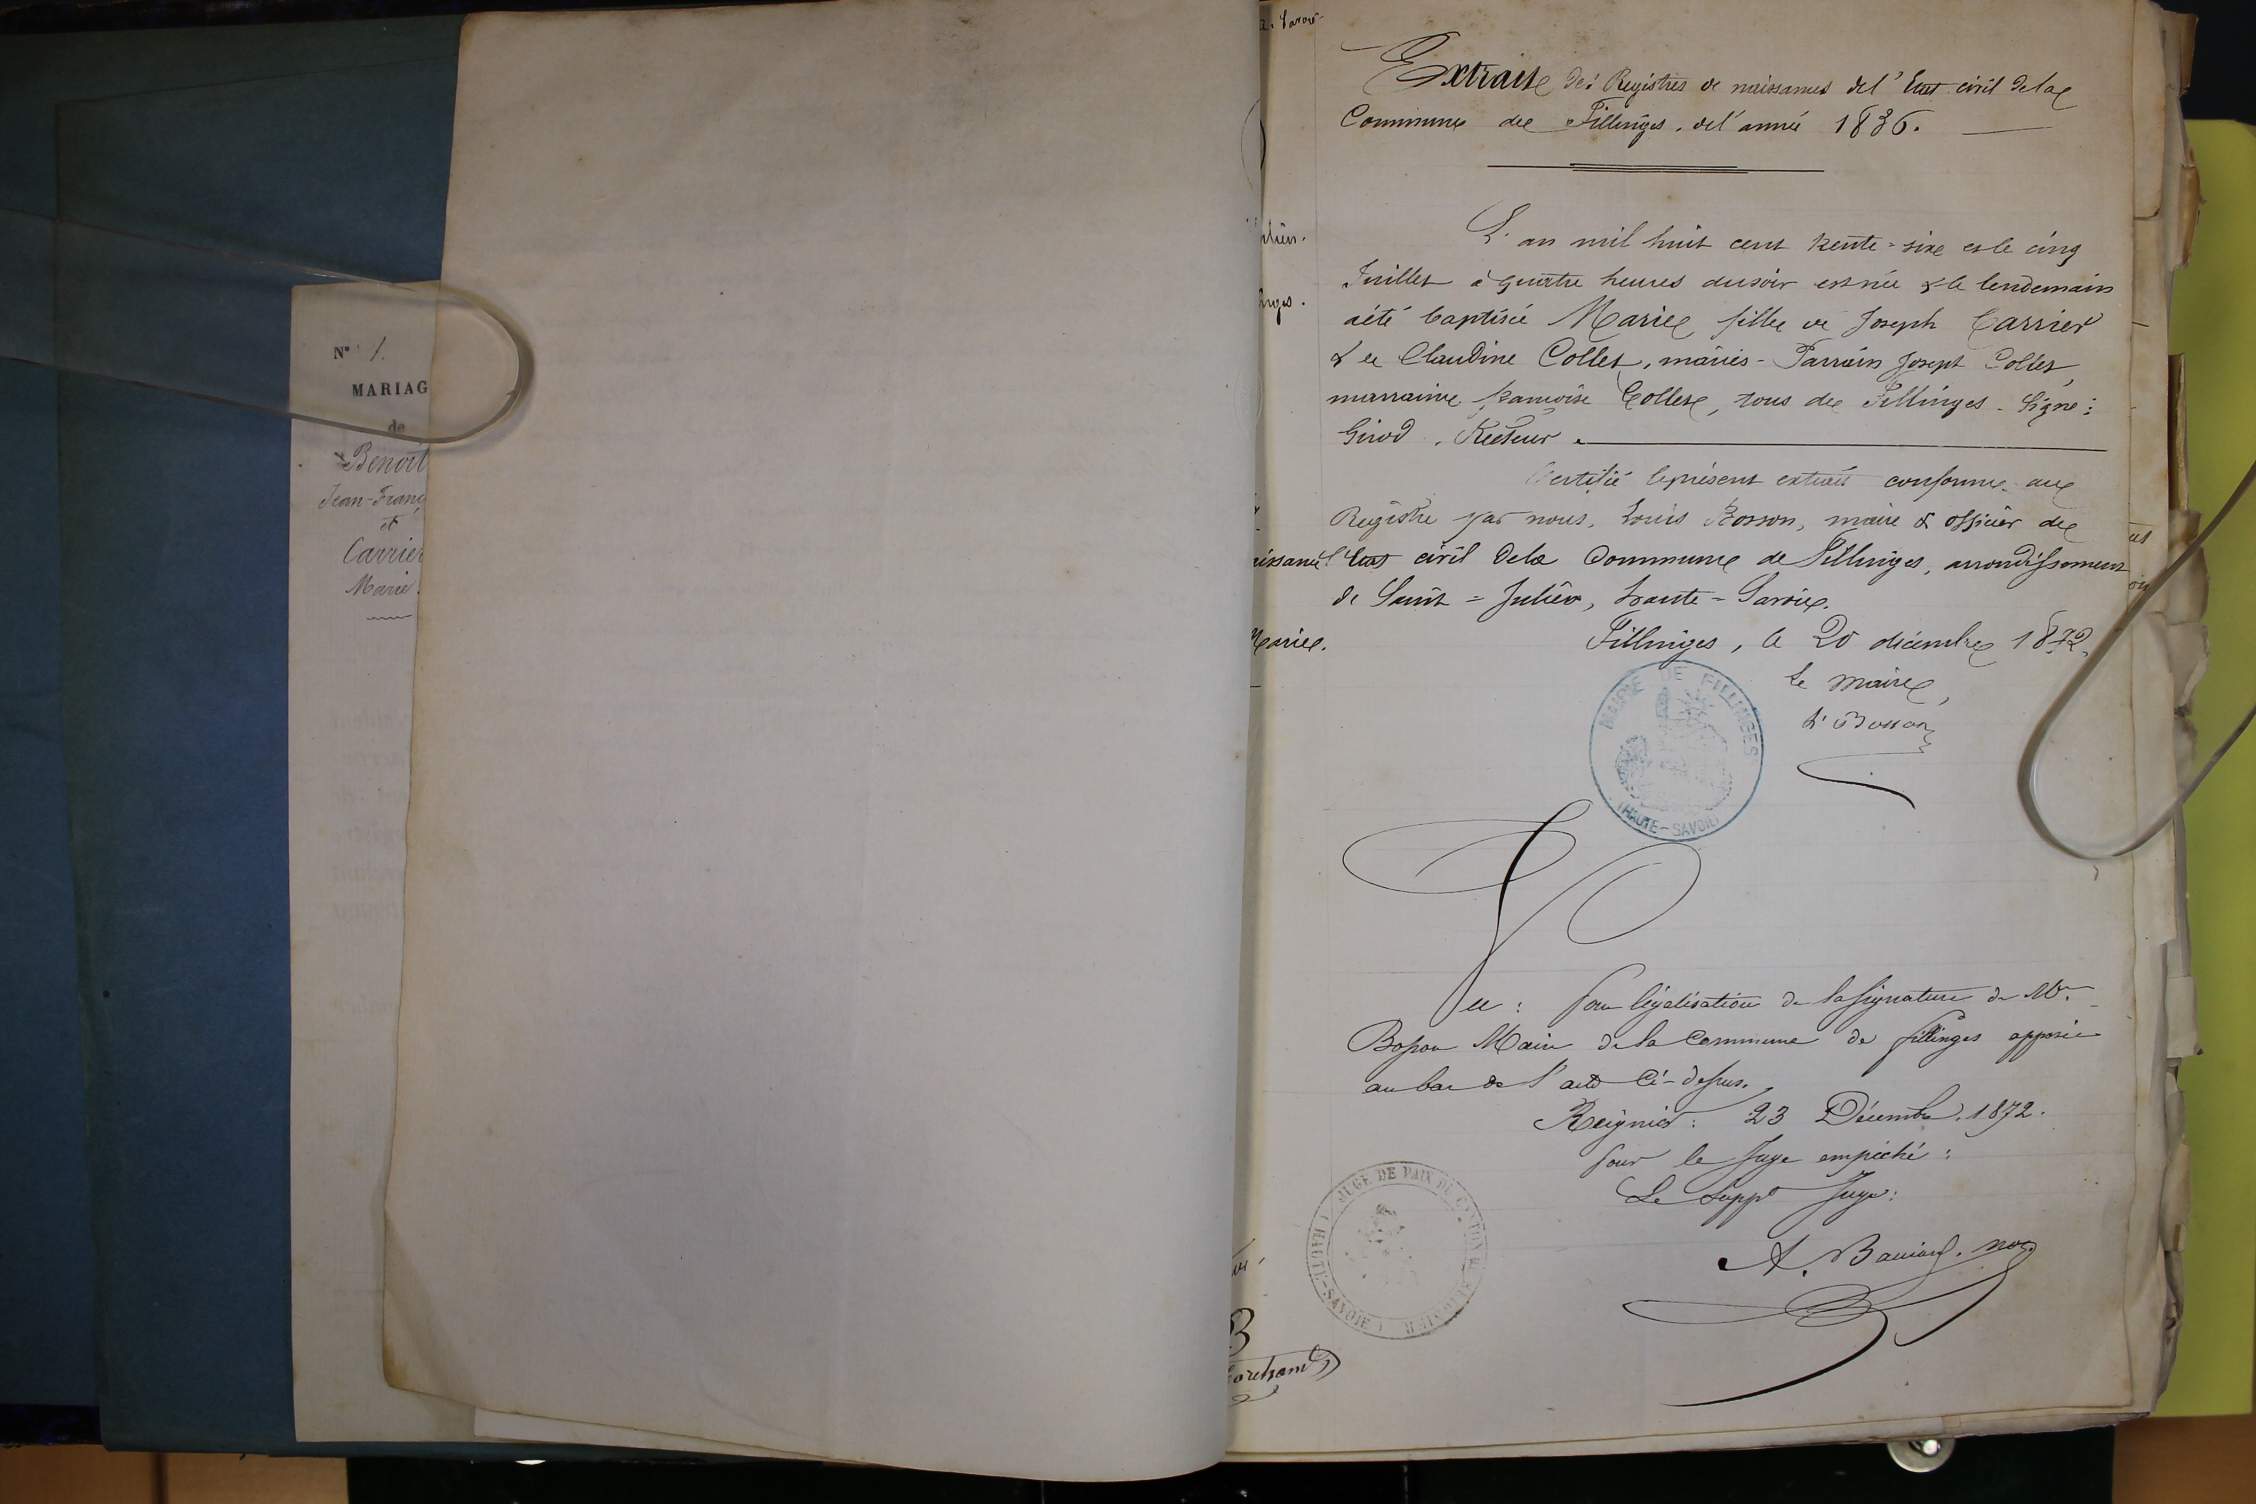 N° 1.
MARIAG
de
Benoit
Jean-Franç
et
Carrier
Marie
Extrait des Registres de naissances de l'Etat civil de la
Commune de Fillinges, de l'année 1836.
L'an mil huit cent trente-six et le cinq
Juillet à quatre heures du soir est née & le lendemain
a été baptisée Marie fille de Joseph Carrier
& de Claudine Collet, mariés - Parrain Joseph Collet,
marraine françoise Collet, tous de Fillinges. Signé:
Girod, Recteur.
Certifié le présent extrait conforme au
Registre par nous, Louis Bosson, maire & officier de
l'Etat civil de la Commune de Fillinges, arrondissement
de Saint-Julien, haute-Savoie.
Fillinges, le 20 décembre 1872.
Le Maire,
L. Bosson
MAIRIE DE FILLINGES
(HAUTE-SAVOIE)
Vu: Pour légalisation de la signature de Mr.
Bosson Maire de la Commune de fillinges apposée
au bas de l'acte ci-dessus.
Reignier: 23 Décembre 1872.
Pour le Juge empêché:
Le Suppt Juge:
JUGE DE PAIX DU CANTON DE REIGNIER
(HAUTE-SAVOIE)
a. Savoie
nges.
aissance
Marie.